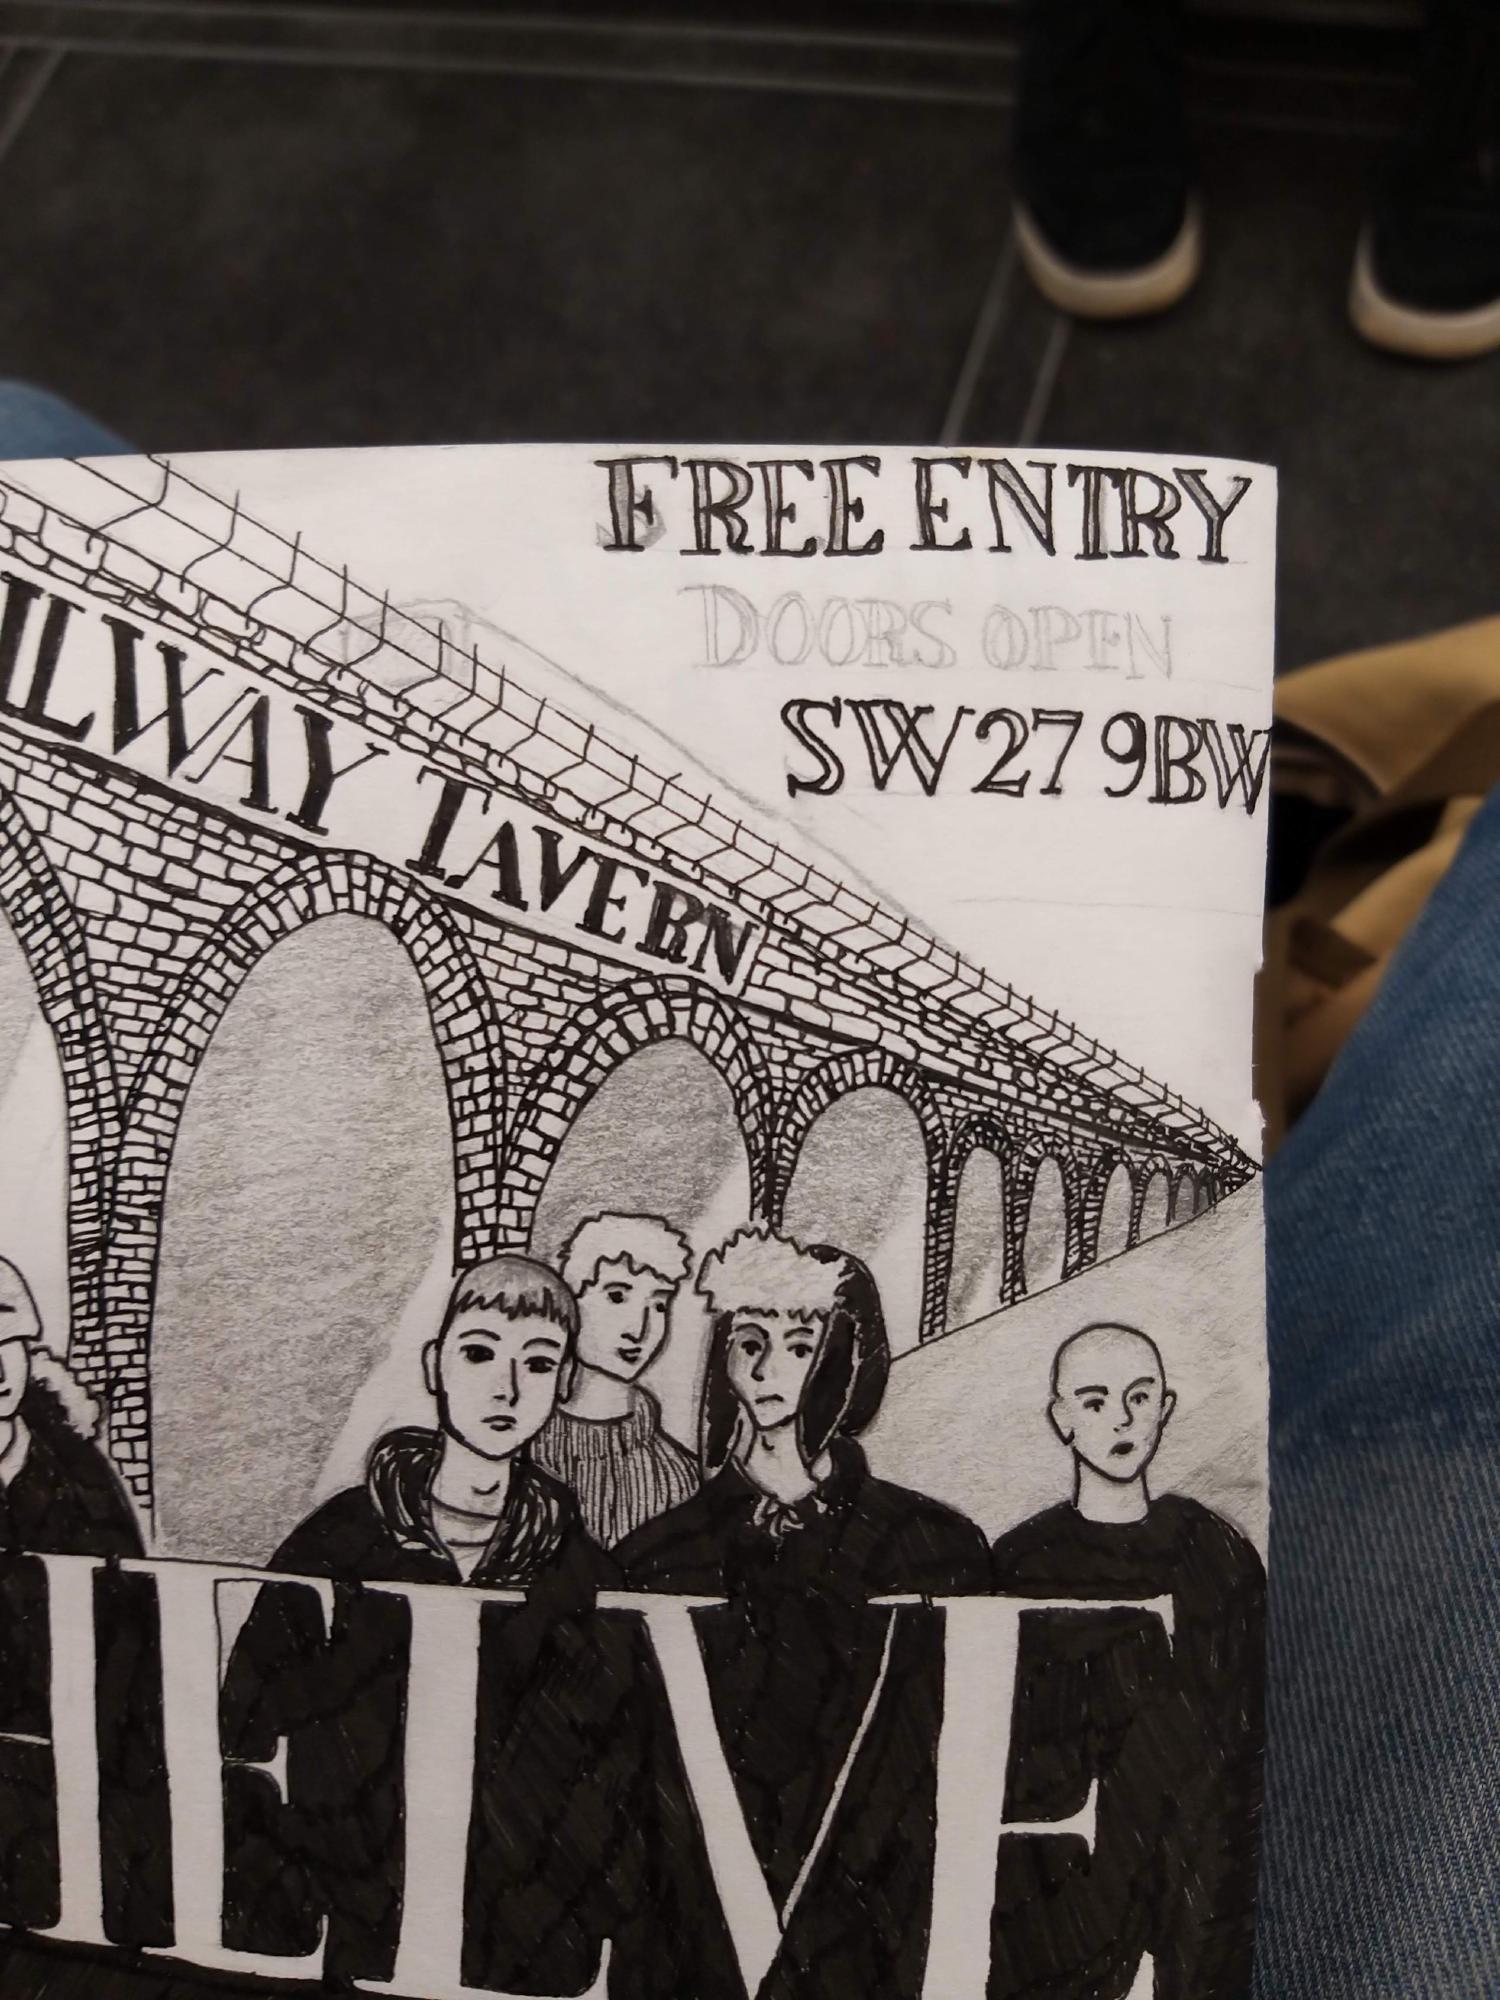 FREE ENTRY
DOORS OPEN
SW27 9BW
ILWAY TAVERN
HELVE